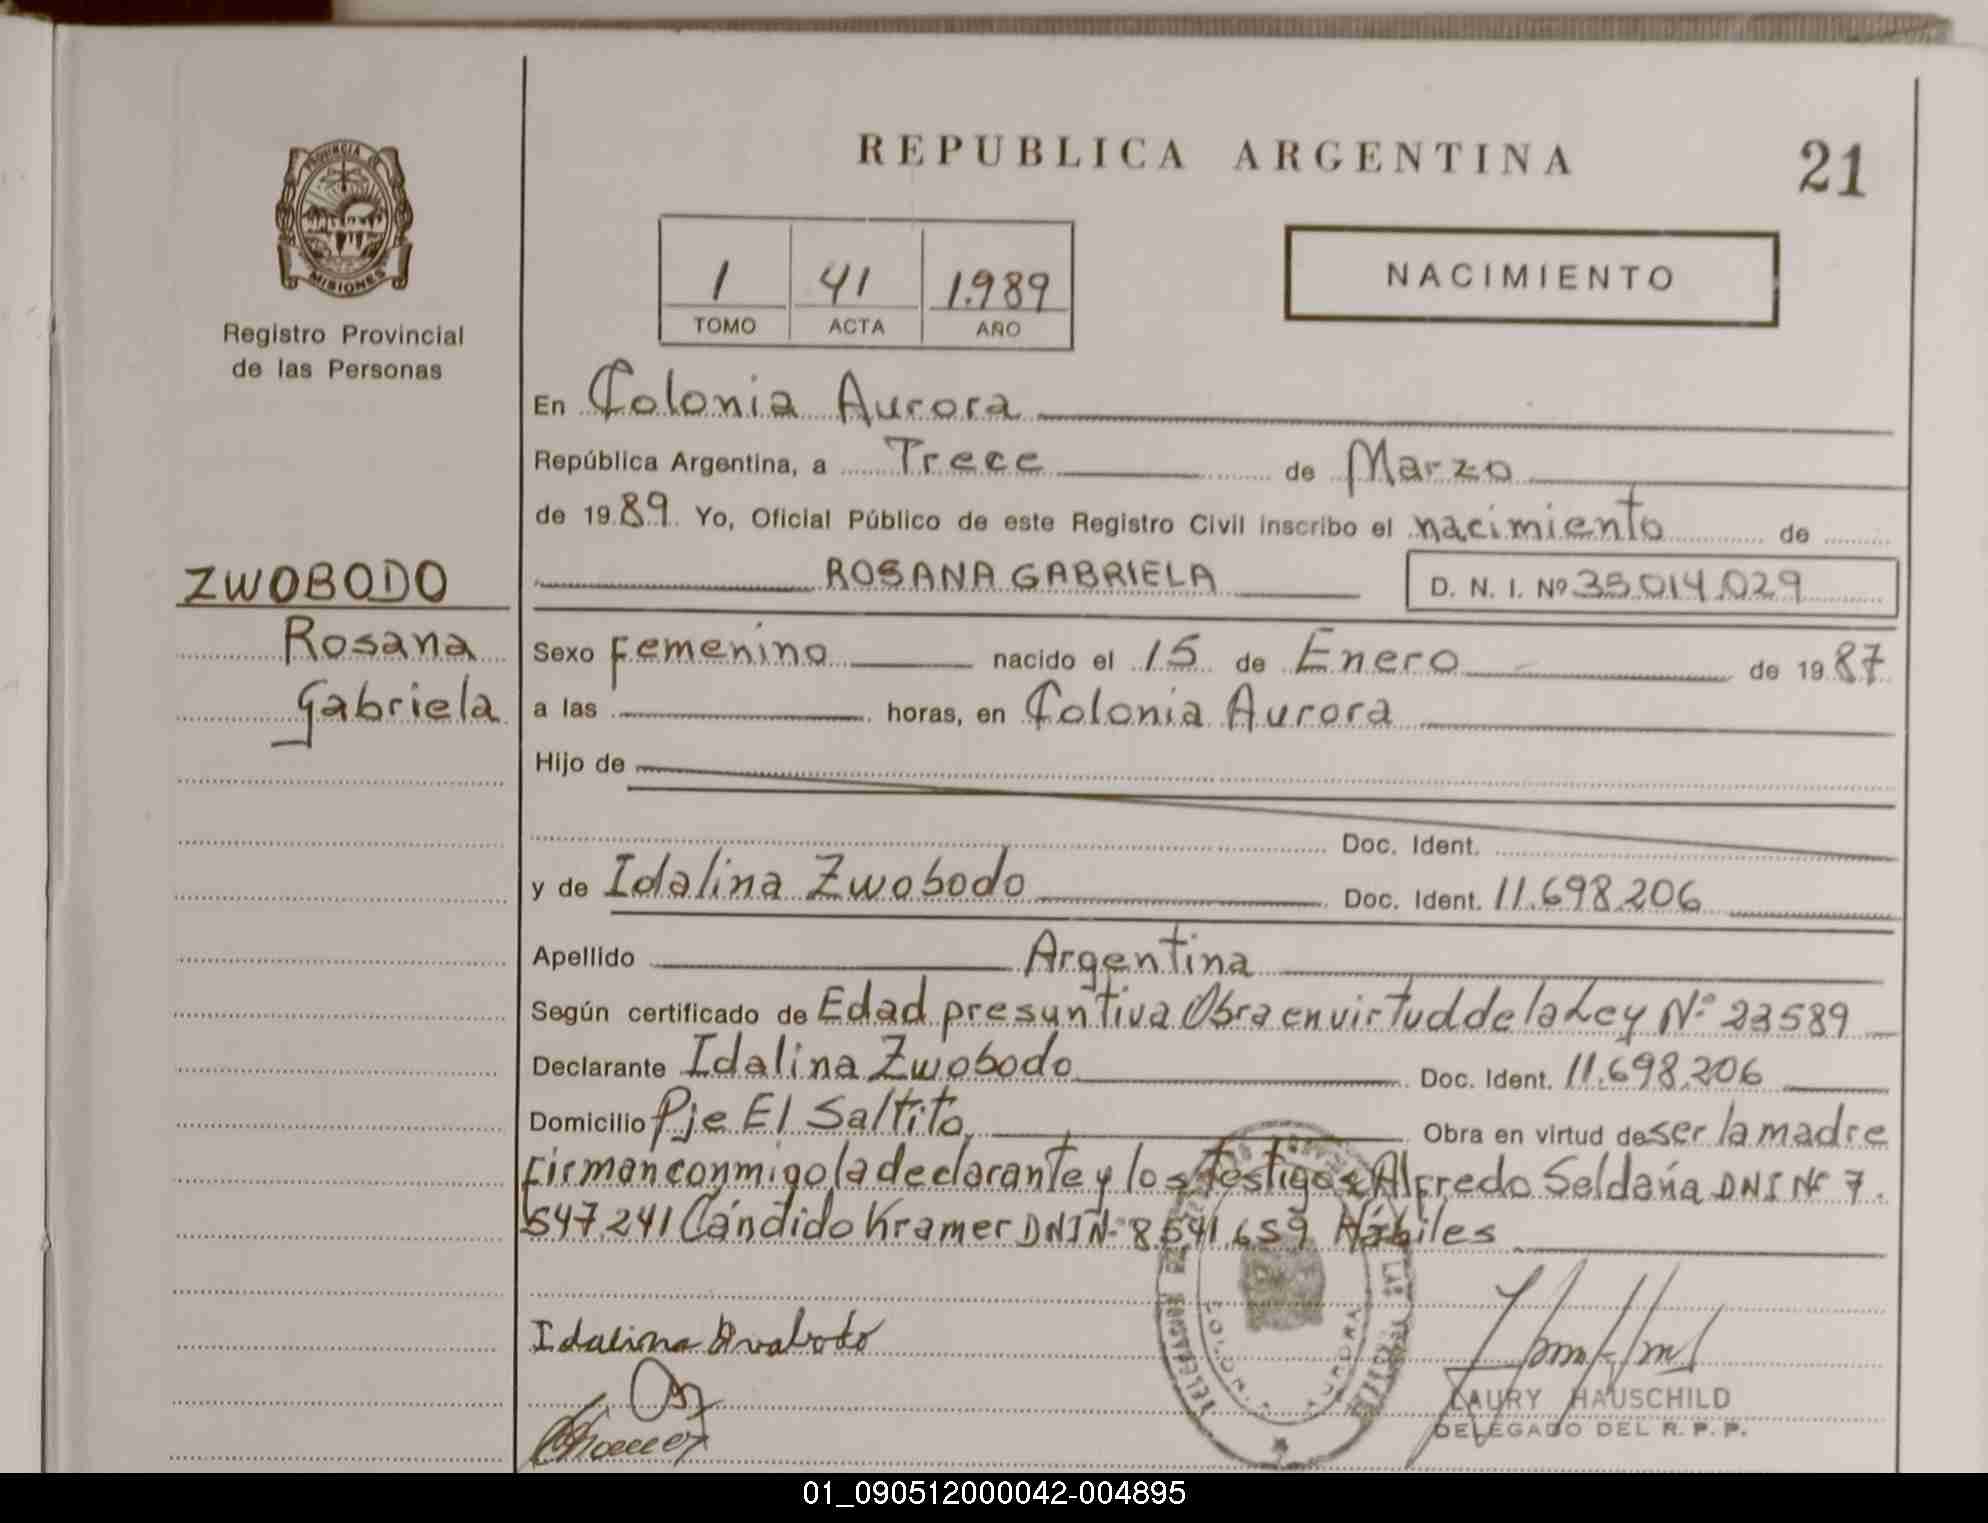 REPUBLICA ARGENTINA
21
PROVINCIA DE
MISIONES
Registro Provincial
de las Personas
1 41 1.989
TOMO ACTA AÑO
NACIMIENTO
En Colonia Aurora
República Argentina, a Trece de Marzo
de 1989 Yo, Oficial Público de este Registro Civil inscribo el nacimiento de
ROSANA GABRIELA D. N. I. Nº 35.014.029
ZWOBODO
Rosana
Gabriela
Sexo Femenino nacido el 15 de Enero de 1987
a las horas, en Colonia Aurora
Hijo de
Doc. Ident.
y de Idalina Zwobodo Doc. Ident. 11.698.206
Apellido Argentina
Según certificado de Edad presuntiva Obra en virtud de la Ley Nº 23589
Declarante Idalina Zwobodo Doc. Ident. 11.698.206
Domicilio Pje El Saltito Obra en virtud de ser la madre
Firman conmigo la declarante y los testigos Alfredo Seldaña DNI Nº 7.
547.241 Cándido Kramer DNI Nº 8.541.659 Hábiles
Idalina
COLONIA AURORA
LAURY HAUSCHILD
DELEGADO DEL R. P. P.
01_090512000042-004895